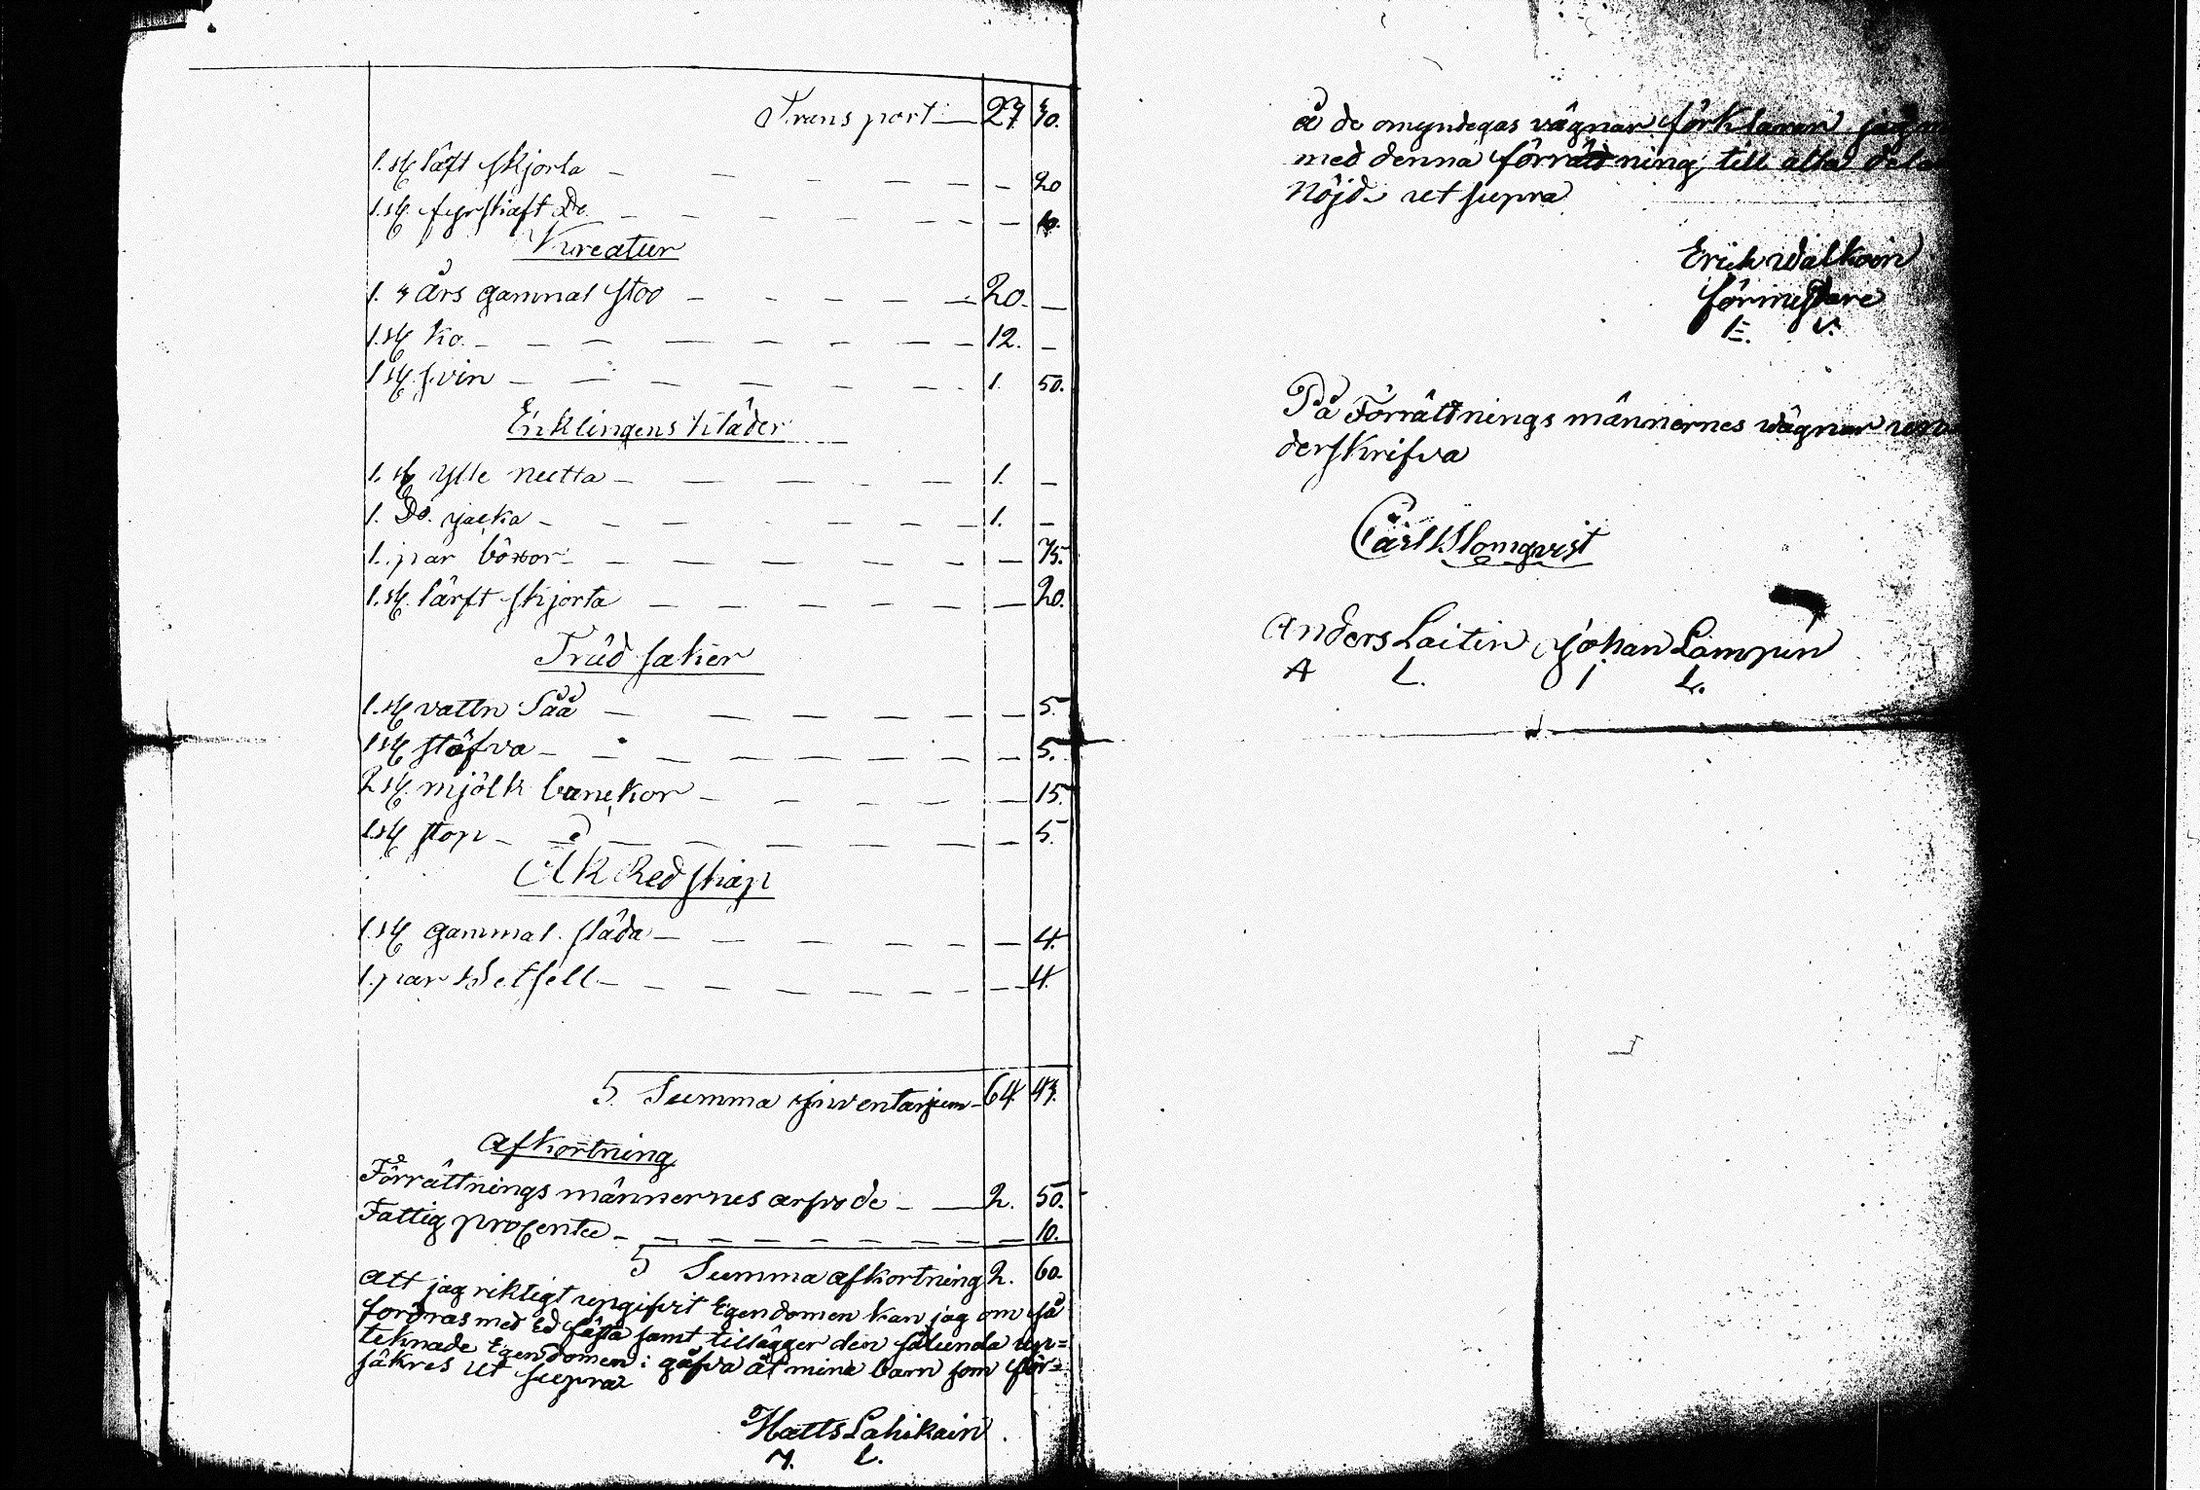 Transport 27 30.
1. st. läft skjorta — 20
1. st. fyrskaft Do. — 10.
Kreatur
1. 4 års gammal stoo — 20. —
1. st. ko. — 12. —
1 st. svin — 1. 50.
Enklingens kläder
1. st. ylle nutta — 1. —
1. Do. jacka — 1. —
1. par böxor — 75.
1. st. lärft skjorta — 20.
Träd saker
1. st. vattn Såå — 5.
1 st. stäfva — 5.
2 st. mjölk bunckor — 15.
1. st. stop — 5.
Åk Redskap
1. st. gammal släda — 4.
1. par — 4.
S Summa jnventarjum 64 43.
Afkortning
Förrättnings männernes arfvode — 2. 50.
Fattig procente — 10.
S Summa afkortning 2. 60.
Att jag riktigt upgifvit Egendomen kan jag om så
fordras med Ed fästa samt tillägger den sålunda up=
teknade Egendomen i gåfva åt mina barn som för=
säkres ut supra
Matts Lahikain
M. L.
å de omyndegas vägnar förklarar jag
med denna förrättning till alla dela
nöjd. ut supra
Erich Walkoin
förmyndare
E. V.
På Förrättnings männernes vägnar un
derskrifva
Carl Blomqvist
Anders Laitin Johan Lampin
A L. J L.